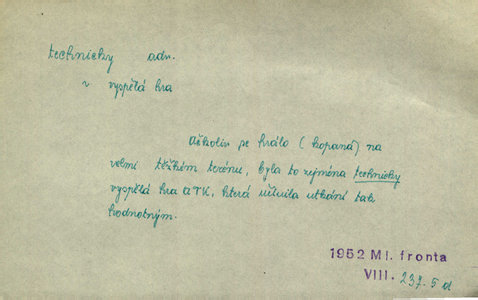 technicky adv.
v vyspělá hra
Ačkoliv se hrálo (kopaná) na
velmi těžkém terénu, byla to zejména technicky
vyspělá hra ATK, která učinila utkání tak
hodnotným.
1952 Ml. fronta
VIII. 237. 5 d